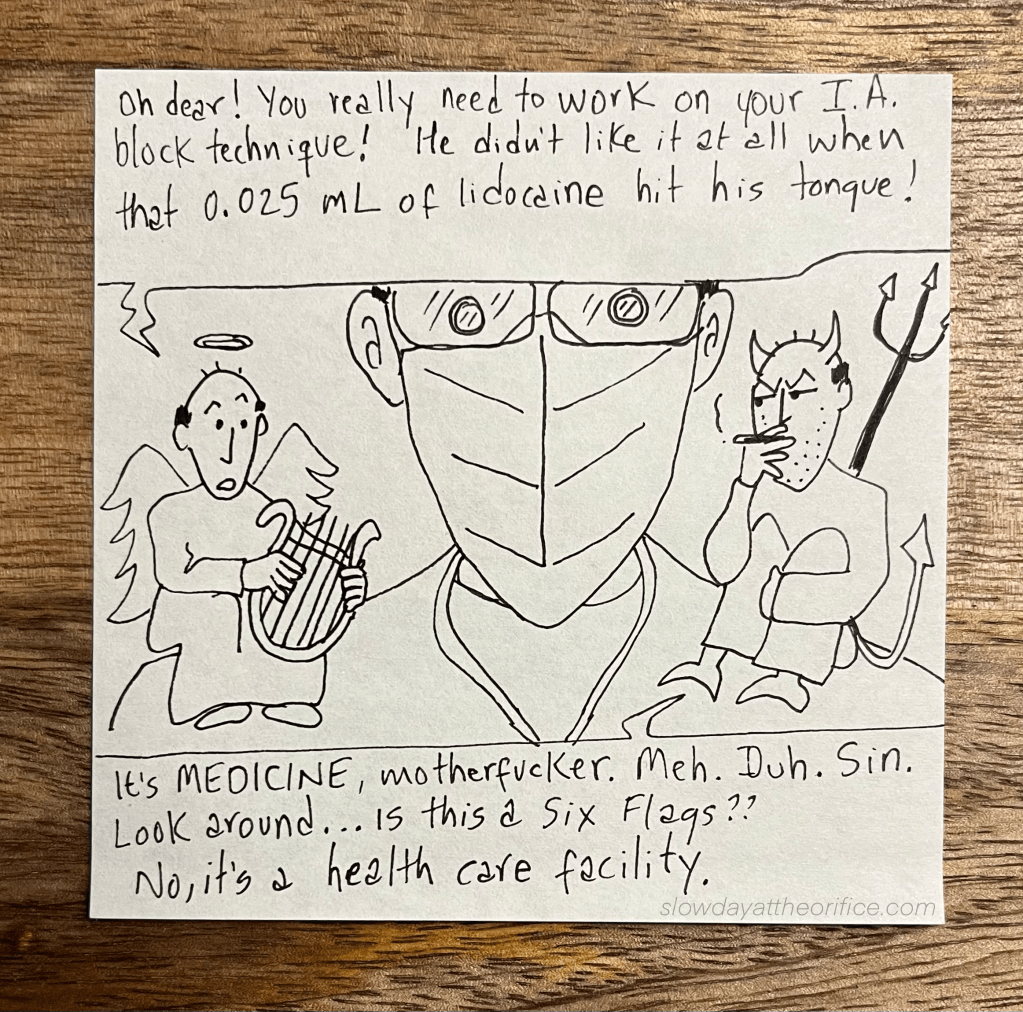 Oh dear! You really need to work on your I.A.
block technique! He didn't like it at all when
that 0.025 mL of lidocaine hit his tongue!
It's MEDICINE, motherfucker. Meh. Duh. Sin.
Look around... is this a Six Flags??
No, it's a health care facility.
slowdayattheorifice.com